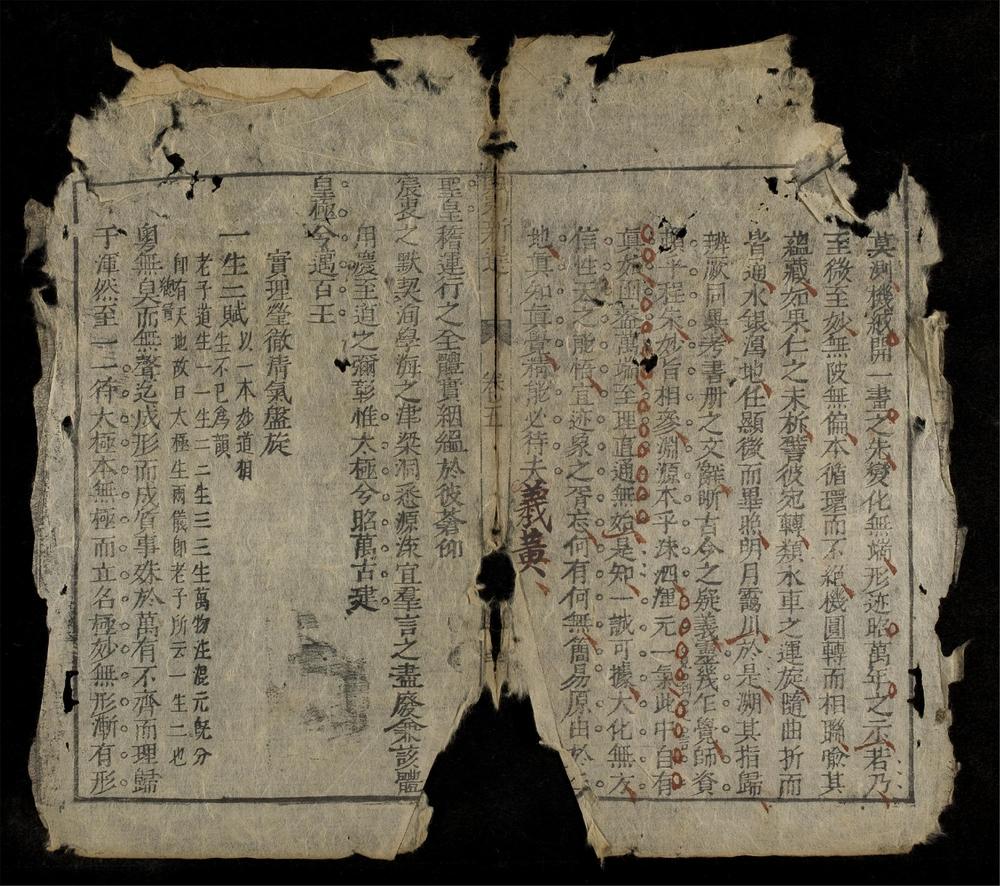 莫測機緘開一畫之先變化無端形迹昭萬年之示若乃
至微至妙無陂無偏本循環而不絕機圓轉而相聯喻其
蘊藏如果仁之未拆譬彼宛轉類水車之運旋隨曲折而
皆通水銀瀉地任顯微而畢照明月靄川於是溯其指歸
辨厥同異考書册之文辭晰古今之疑義靈幾乍覺師資
乎程朱妙旨相參淵源本乎洙泗浬元一氣此中自有
真如血盎萬端至理直通無始是知一誠可據大化無方
信性天之能悟宜迹象之胥忘何有何無簡易原由於
地真知真覺精能必待夫羲黃
卷五
聖皇稽運行之全體實絪縕於彼蒼仰
宸衷之默契洵學海之津梁洞悉源流宜羣言之盡廢兼該體
用慶至道之彌彰惟太極兮昭萬古建
皇極兮邁百王
實理瑩徹清氣盤旋
一生二賦以一本妙道相生不已爲韻
老子道生一一生二二生三三生萬物在混元旣分
卽有天地故曰太極生兩儀卽老子所云一生二也
奧無臭而無聲迄成形而成質事殊於萬有不齊而理歸
于渾然至一二待太極本無極而立名極妙無形漸有形